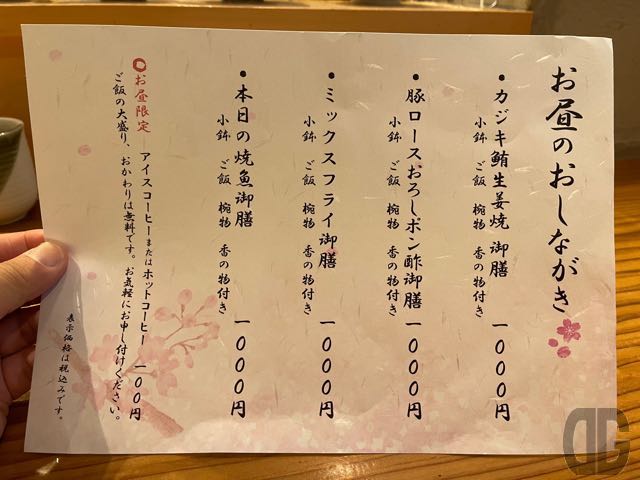 お昼のおしながき
・カジキ鮪生姜焼 御膳 一〇〇〇円
小鉢 ご飯 椀物 香の物付き
・豚ロースおろしポン酢御膳 一〇〇〇円
小鉢 ご飯 椀物 香の物付き
・ミックスフライ御膳 一〇〇〇円
小鉢 ご飯 椀物 香の物付き
・本日の焼魚御膳 一〇〇〇円
小鉢 ご飯 椀物 香の物付き
お昼限定 アイスコーヒーまたはホットコーヒー 一〇〇円
ご飯の大盛り、おかわりは無料です。お気軽にお申し付けください。
表示価格は税込みです。
DG